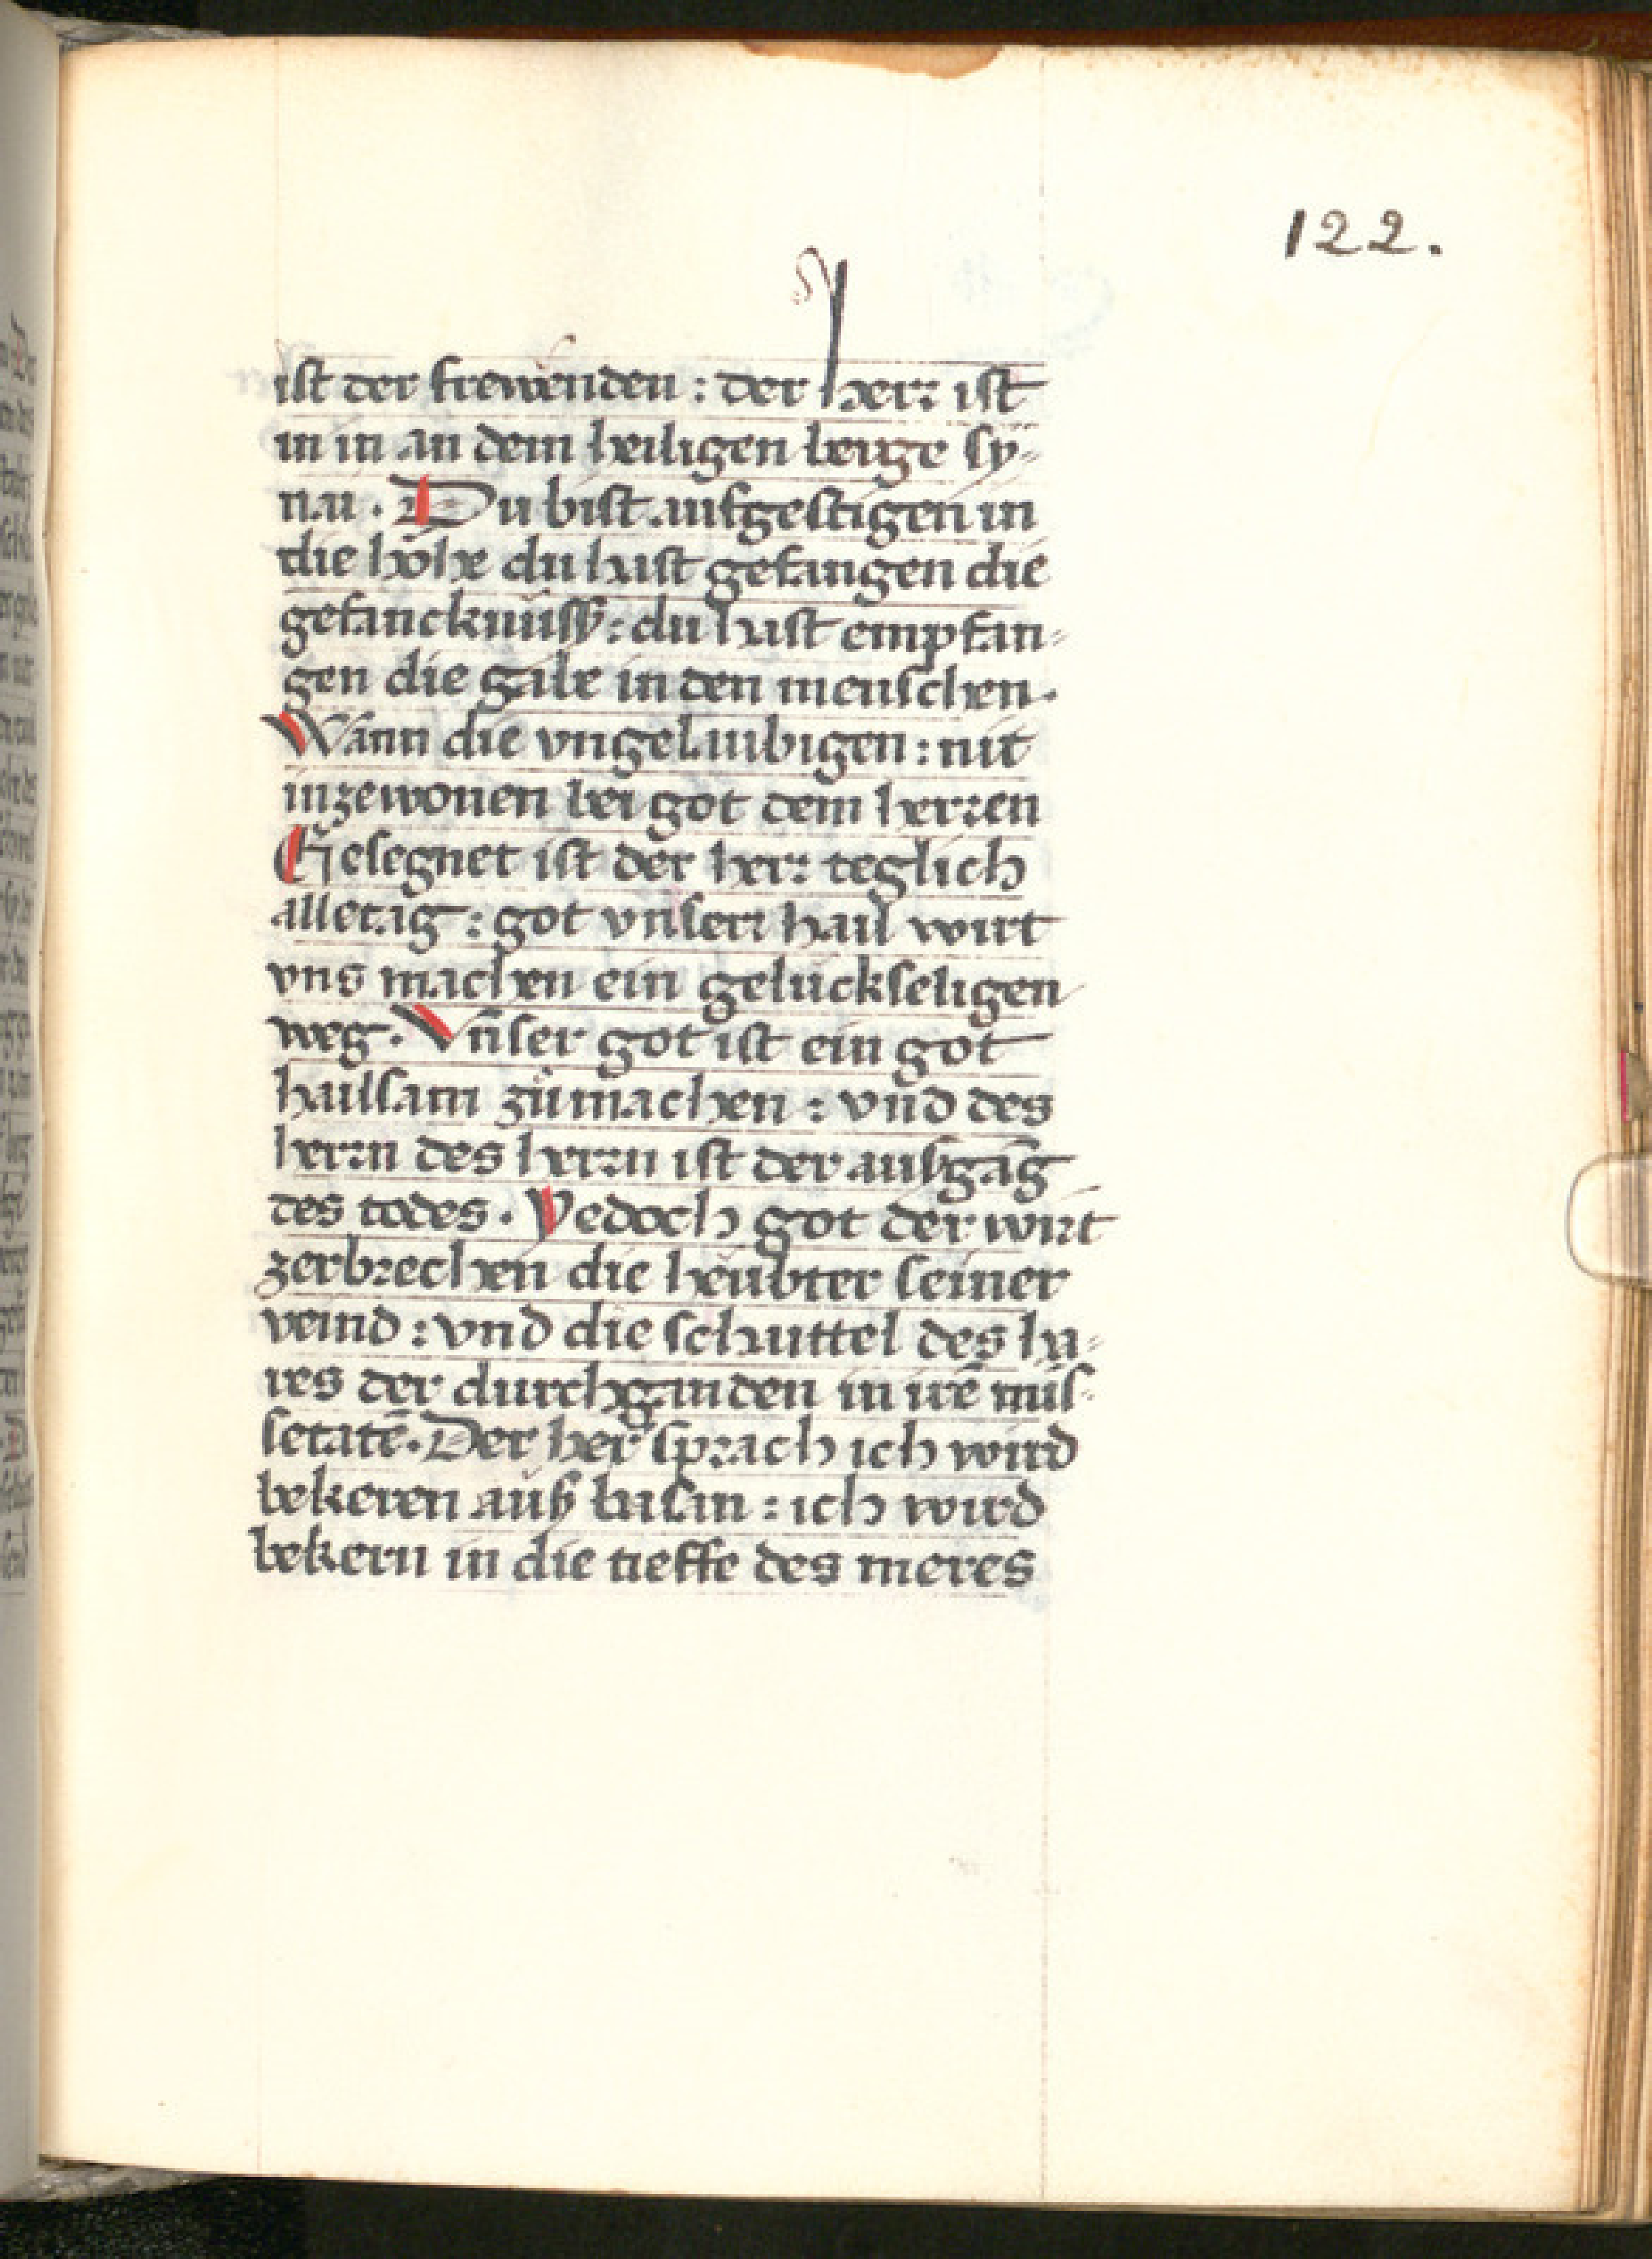 122.
ist der frewenden : der herr ist
in in an dem heiligen berge sy-
nai . Du bist aufgestigen in
die höhe du hast gefangen die
gefancknüss : du hast empfan-
gen die gabe in den menschen .
Wann die vngelaubigen : nit
inzewonen bei got dem herren
Gesegnet ist der herr teglich
alletag : got vnser hail wirt
vns machen ein gelückseligen
weg . Vnser got ist ein got
hailsam zůmachen : vnd des
herrn des herrn ist der aufgāg
des todes . Yedoch got der wirt
zerbrechen die heubter seiner
veind : vnd die schaittel des ha-
res der durchganden in irē mis-
setatē . Der her sprach ich wird
bekeren auß basan : ich wird
bekern in die tieffe des meres